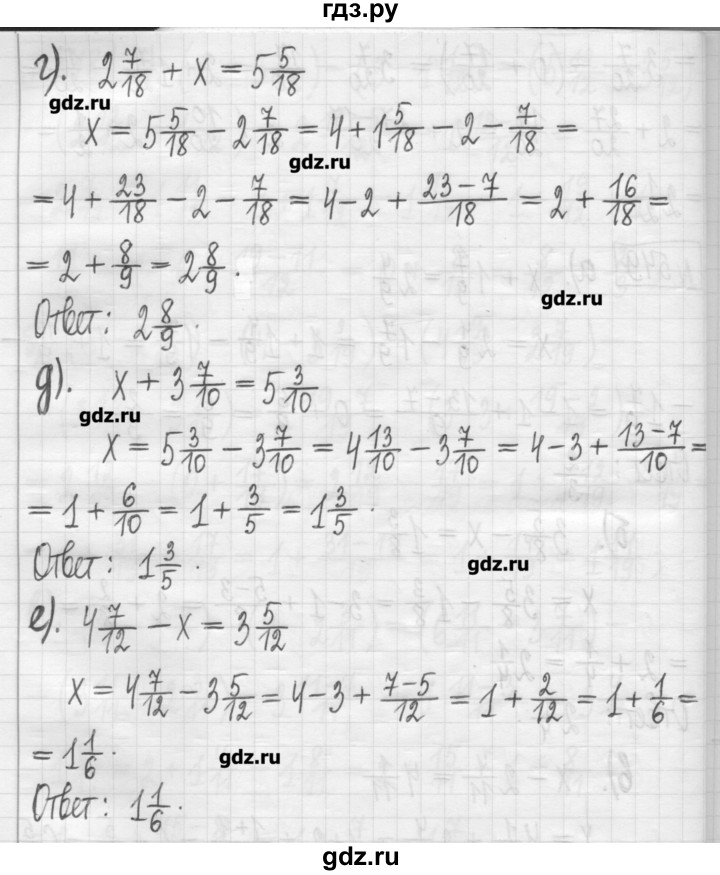 гдз.ру
г). 2 7/18 + x = 5 5/18
gdz.ru
x = 5 5/18 - 2 7/18 = 4 + 1 5/18 - 2 - 7/18 =
gdz.ru
= 4 + 23/18 - 2 - 7/18 = 4 - 2 + (23-7)/18 = 2 + 16/18 =
= 2 + 8/9 = 2 8/9.
gdz.ru
Ответ: 2 8/9.
д). x + 3 7/10 = 5 3/10
gdz.ru
x = 5 3/10 - 3 7/10 = 4 13/10 - 3 7/10 = 4 - 3 + (13-7)/10 =
= 1 + 6/10 = 1 + 3/5 = 1 3/5.
Ответ: 1 3/5.
gdz.ru
е). 4 7/12 - x = 3 5/12
x = 4 7/12 - 3 5/12 = 4 - 3 + (7-5)/12 = 1 + 2/12 = 1 + 1/6 =
= 1 1/6.
gdz.ru
Ответ: 1 1/6.
gdz.ru